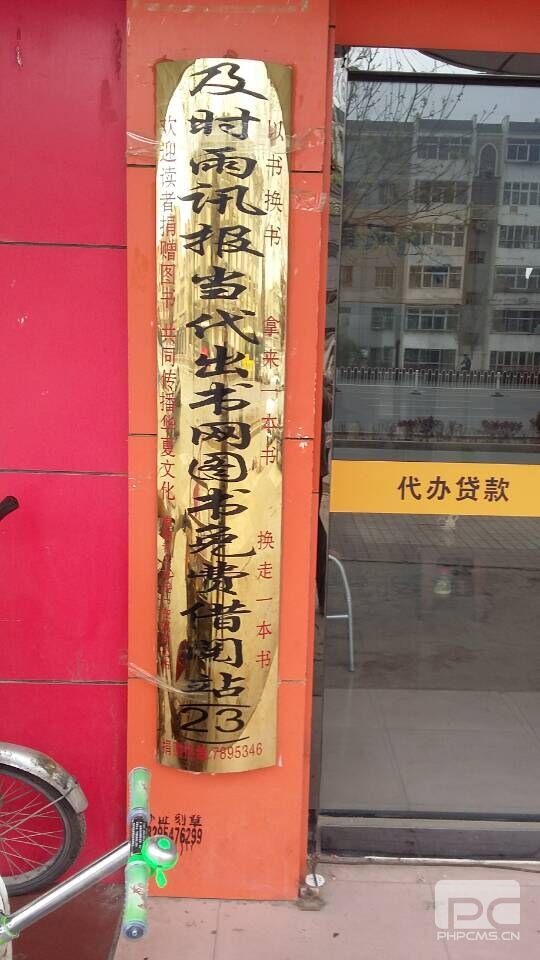 以书换书 拿来一本书 换走一本书
及时雨讯报当代出书网图书免费借阅站
23
欢迎读者捐赠图书 共同传播华夏文化
7895346
代办贷款
办证刻章
PC
PHPCMS.CN